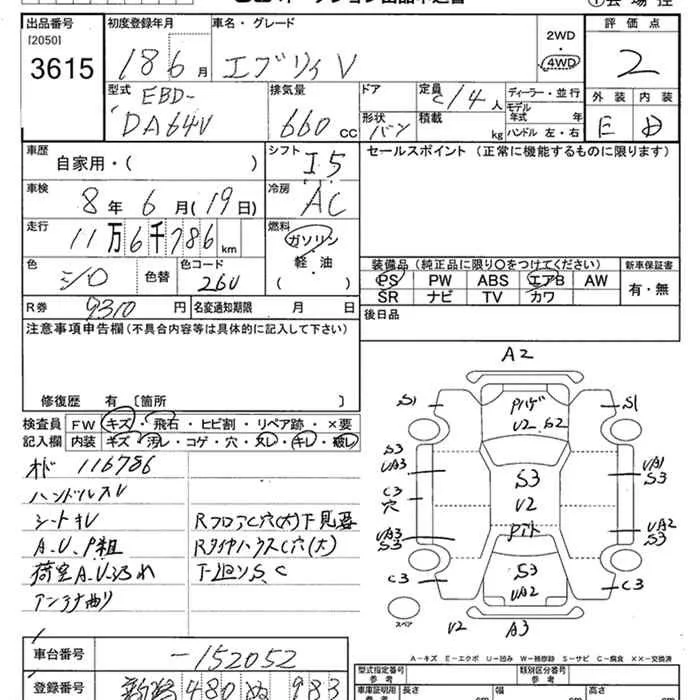 出品番号
[2050]
3615
初度登録年月
18 6月
車名・グレード
エブリィ V
2WD
・
4WD
評価点
2
外装 内装
E D
型式
EBD-
DA64V
排気量
660 cc
ドア
形状
バン
定員
/4人
積載
kg
ディーラー・並行
モデル年式 年
ハンドル 左・右
車歴
自家用・( )
シフト
I5
セールスポイント(正常に機能するものに限ります)
車検
8年 6月(19日)
冷房
AC
走行
11万6千786km
燃料
ガソリン
軽・油
( )
色
シロ
色替
色コード
26U
装備品(純正品に限り○をつけてください)
新車保証書
PS PW ABS エアB AW
SR ナビ TV カワ
有・無
R券 9310円
名変通知期限 月 日
後日品
注意事項申告欄(不具合内容等は具体的に記入して下さい)
修復歴 有〔箇所 〕
検査員 FW キズ・飛石・ヒビ割・リペア跡・×要
記入欄 内装 キズ・汚レ・コゲ・穴・ヌレ・キレ・破レ
オド 116786
ハンドルスV
シートキV
A.U.P組
荷室A.U.汚れ
アンテナ曲り
RフロアC穴(大)下見要
RタイヤハウスC穴(大)
下回りS.C
A2
S1
Pハゲ
U2 S2
S1
S3
UA3
C3
穴
UA3
S3
C3
S3
U2
Pイト
S3
UA2
UA1
S3
UA2
S3
C3
スペア
U2
A3
A-キズ E-エクボ U-凹み W-補修跡 S-サビ C-腐食 ××-交換済
車台番号
-152052
登録番号
新潟 480 ぬ 983
型式指定番号
参考
類別区分番号
参考
車庫証明用
長さ
cm
幅
cm
高さ
cm